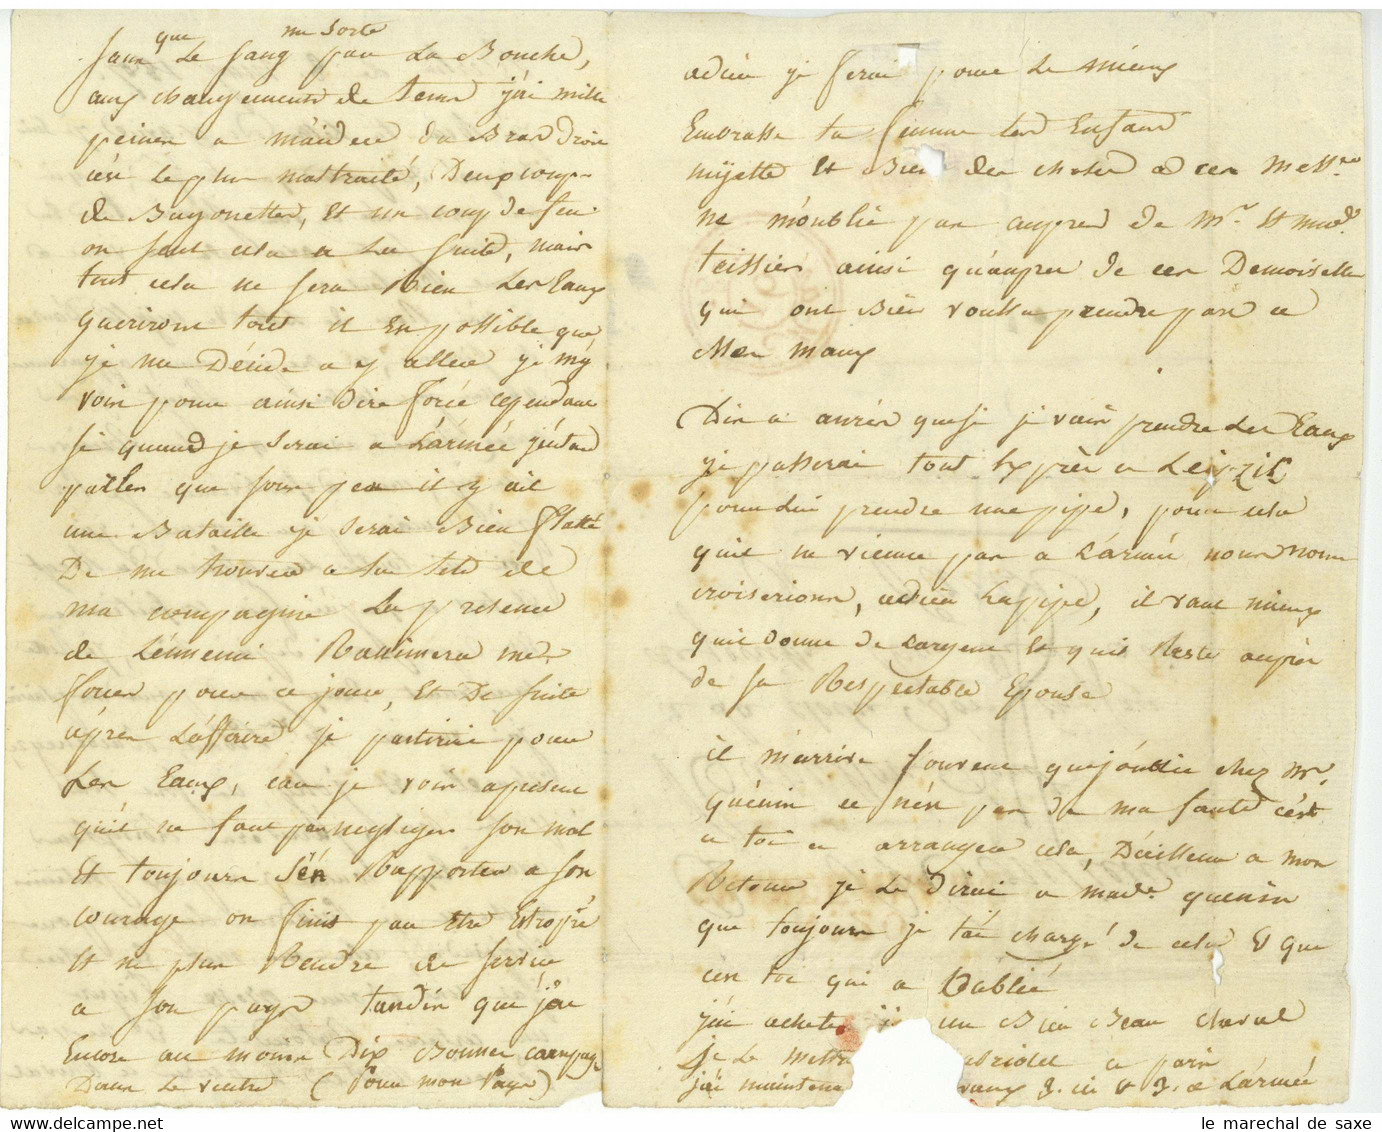 sans que le sang me sorte par la Bouche,
aux changements de tems j'ai mille
peines a m'aider du Bras droit
c'est le plus maltraité, Deux coups
de Bayonettes, et un coup de feu
on sent cela a la suite, mais
tout cela ne sera Rien les Eaux
Gueriront tout il Est possible que
je me Décide a y aller je m'y
vois pour ainsi dire forcé cependant
si quand je serai a L'armée j'entend
parler que sous peu il y ait
une Bataille je serai Bien flatté
De me trouver a la tete de
ma compagnie La presence
de L'énnemi Ranimera mes
forces pour ce jour, et De suite
après L'affaire je partirai pour
Les Eaux, car je vois apresent
qu'il ne faut pas negliger son mal
Et toujours s'én Rapporter a son
courage on finit par être Estropié
et ne plus Rendre de service
a son pays tandis que j'ai
Encore au moins Dix Bonnes campag
Dans le ventre (Pour mon Pays)
adieu je serai pour le mieux
Embrasse ta femme les Enfans
mijette et Bien des choses a ces Mess.rs
ne m'oublie pas aupres de Mr. et Mad.
teissier ainsi qu'aupres de ces Demoiselles
qui ont Bien voulu prendre part a
Mes maux
Dis a que si je vais prendre les Eaux
je passerai tout Exprès a Leipzic
pour lui prendre une pipe, pour cela
qu'il ne vienne pas a L'armée nous nous
croiserions, adieu la pipe, il vaut mieux
qu'il donne de L'argent et qu'il Reste auprès
de sa Respectable Epouse
il m'arrive souvent que j'oublie chez Mr.
Guénin ce n'est pas de ma faute c'est
a toi a arranger cela, D'ailleurs a mon
Retour je Le Dirai a Made. Guenin
que toujours je t'ai chargé de cela et que
c'est toi qui a oublié
j'ai acheté un Bien Beau cheval
je Le mettrai a paris
j'ai mainten 3. ici et 3. a L'armée
le marechal de saxe